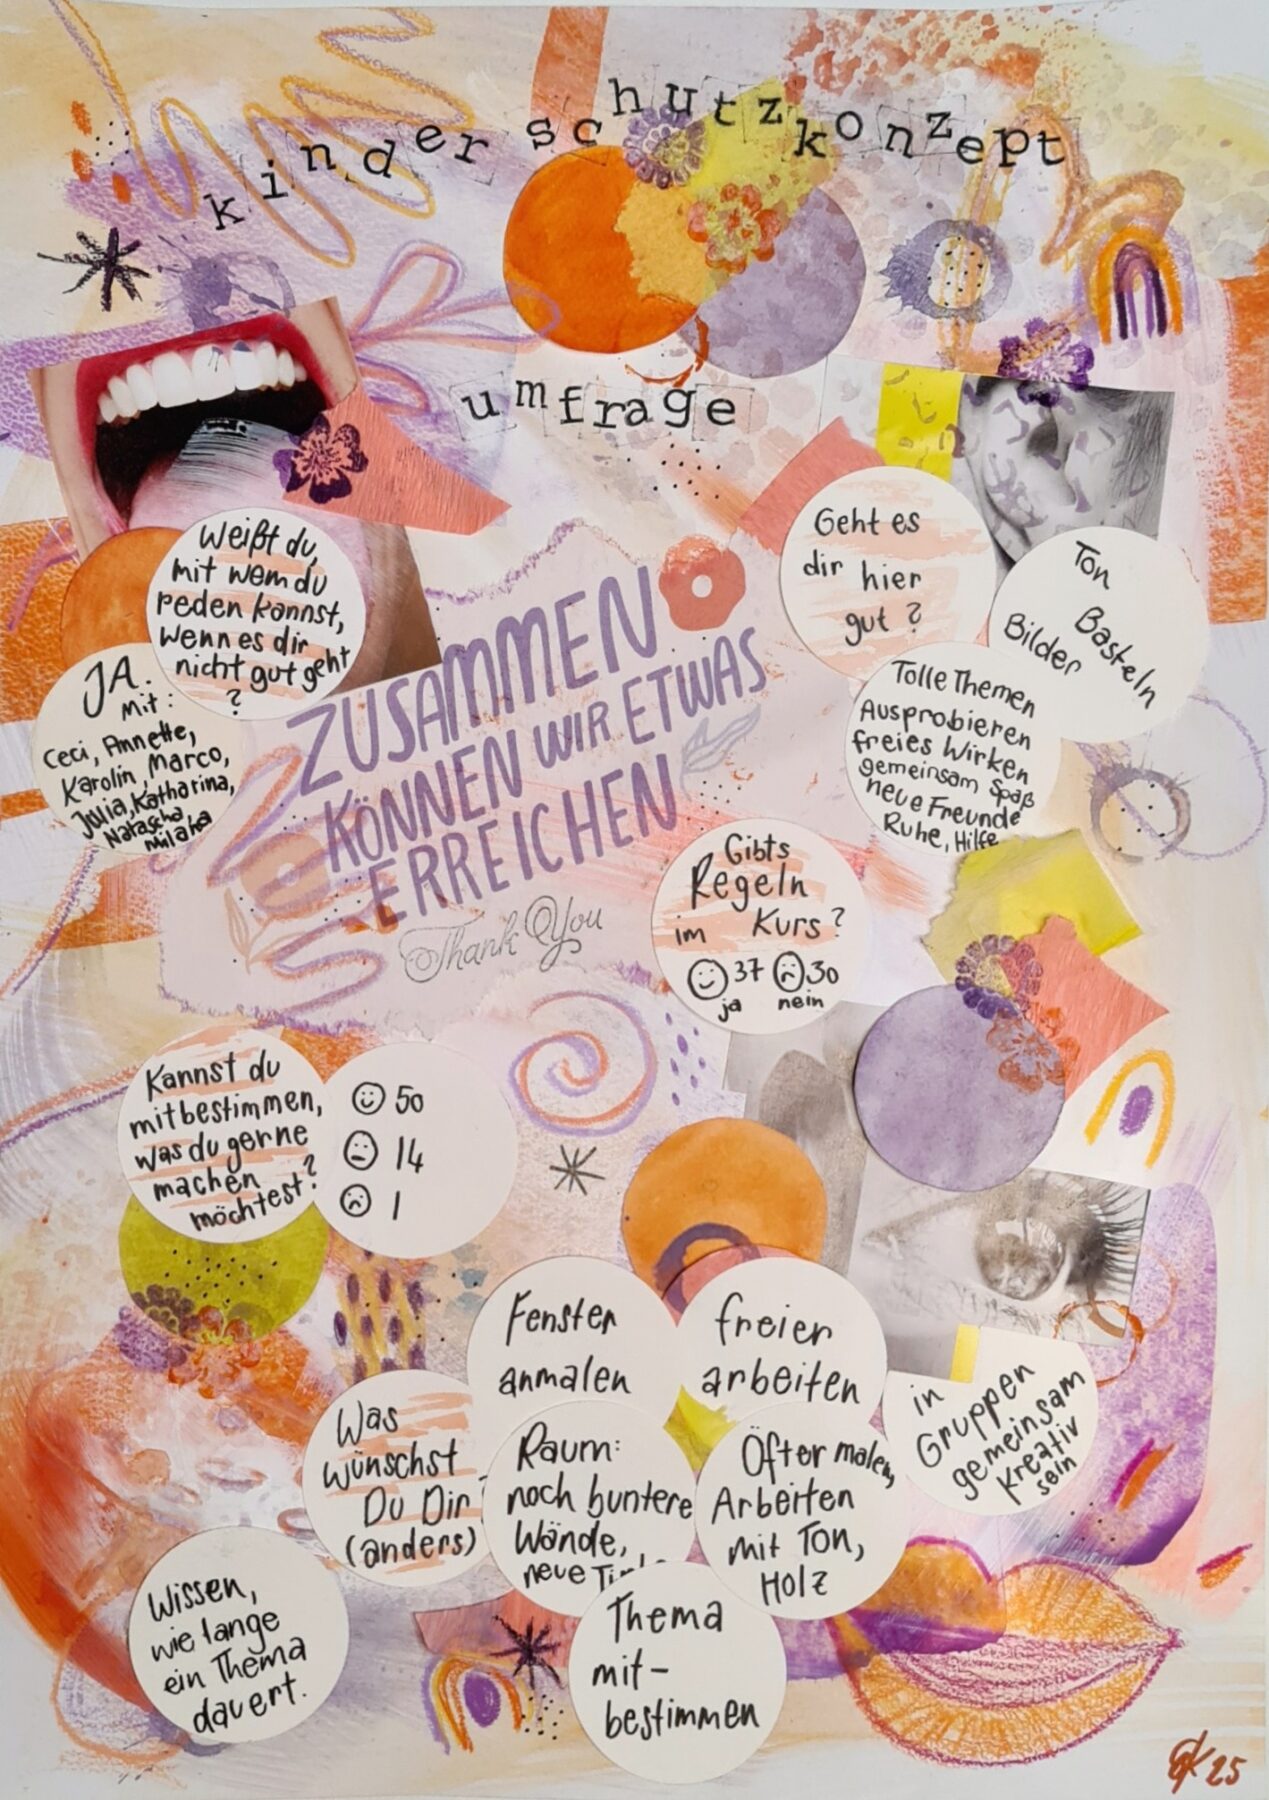 kinderschutzkonzept
umfrage
Weißt du,
mit wem du
reden kannst,
wenn es dir
nicht gut geht
?
JA.
Mit:
Ceci, Annette,
Karolin, Marco,
Julia, Katharina,
Natascha
ZUSAMMEN
KÖNNEN WIR ETWAS
ERREICHEN
Thank You
Geht es
dir hier
gut?
Ton
Basteln
Bilder
Tolle Themen
Ausprobieren
freies Wirken
gemeinsam Spaß
neue Freunde
Ruhe, Hilfe
Gibts
Regeln
im Kurs?
37 30
ja nein
Kannst du
mitbestimmen,
was du gerne
machen
möchtest?
50
14
1
Was
wünschst
Du Dir
(anders)
Fenster
anmalen
freier
arbeiten
in
Gruppen
gemeinsam
Kreativ
sein
Raum:
noch buntere
Wände,
neue
Öfter malen,
Arbeiten
mit Ton,
Holz
Wissen,
wie lange
ein Thema
dauert.
Thema
mit-
bestimmen
25